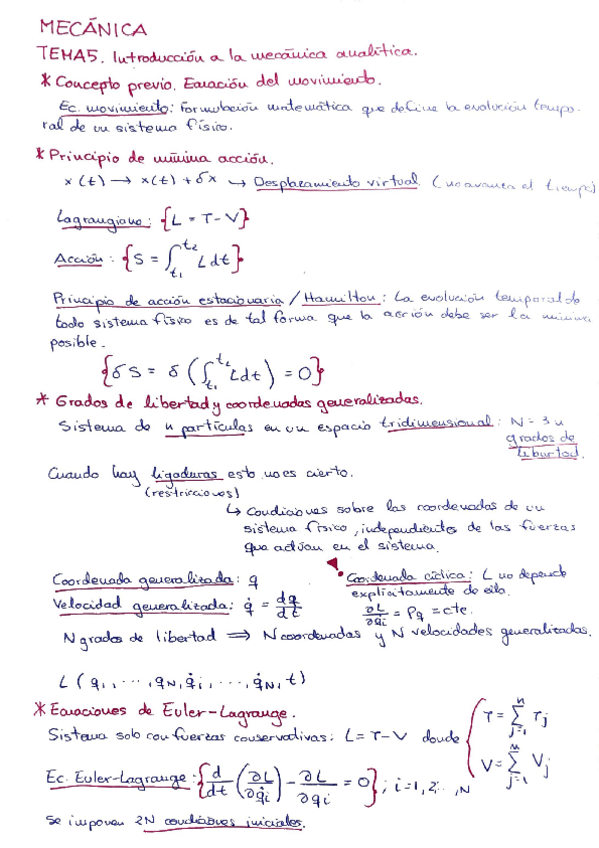 MECÁNICA
TEMA 5. Introducción a la mecánica analítica.
* Concepto previo. Ecuación del movimiento.
Ec. movimiento: Formulación matemática que define la evolución tempo-
ral de un sistema físico.
* Principio de mínima acción.
x(t) → x(t) + δx ↳ Desplazamiento virtual (no avanza el tiempo)
Lagrangiano: {L = T - V}
Acción: {S = ∫_{t₁}^{t₂} L dt}
Principio de acción estacionaria / Hamilton: La evolución temporal de
todo sistema físico es de tal forma que la acción debe ser la mínima
posible.
{δS = δ(∫_{t₁}^{t₂} L dt) = 0}
* Grados de libertad y coordenadas generalizadas.
Sistema de n partículas en un espacio tridimensional: N = 3n
grados de
libertad.
Cuando hay ligaduras esto no es cierto.
(restricciones)
↳ Condiciones sobre las coordenadas de un
sistema físico, independientes de las fuerzas
que actúan en el sistema.
Coordenada generalizada: q
Coordenada cíclica: L no depende
explícitamente de ella.
Velocidad generalizada: q̇ = dq/dt
∂L/∂q̇i = Pq = cte.
N grados de libertad ⟹ N coordenadas y N velocidades generalizadas.
L (q₁, ..., qN, q̇₁, ..., q̇N, t)
* Ecuaciones de Euler-Lagrange.
Sistema solo con fuerzas conservativas: L = T - V donde { T = Σ_{j=1}^{n} Tj
V = Σ_{j=1}^{n} Vj
Ec. Euler-Lagrange: {d/dt (∂L/∂q̇i) - ∂L/∂qi = 0}; i = 1, 2, ..., N
Se imponen 2N condiciones iniciales.